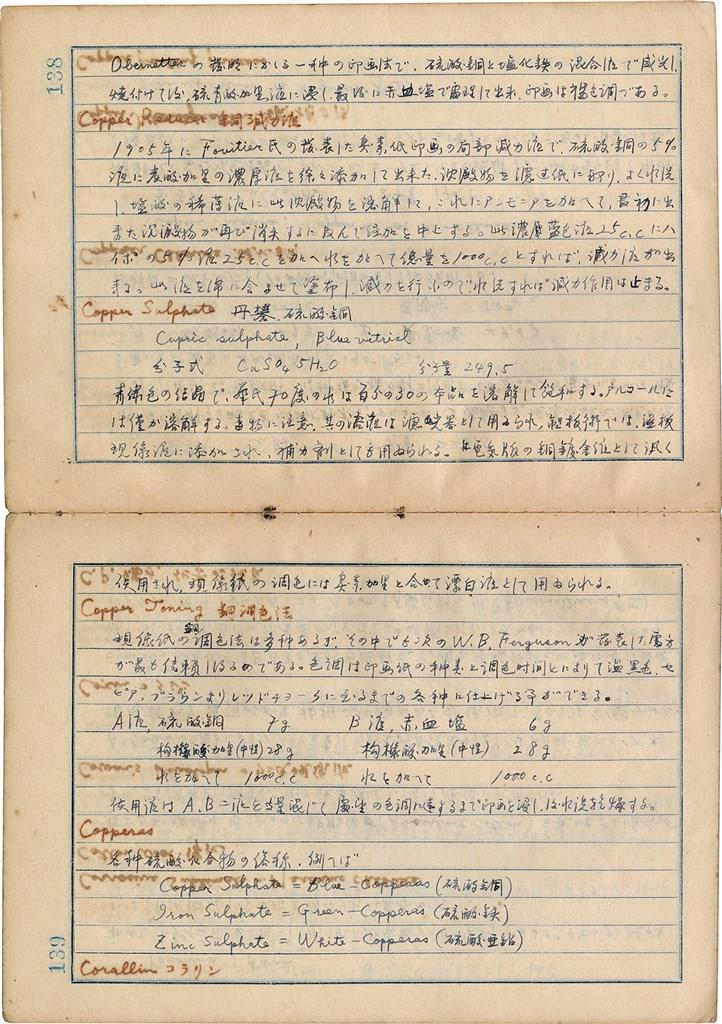 138
Obernetter の発明にかゝる一種の印画法で、硫酸銅と塩化鉄の混合液で感光し、
焼付けて後、硫青酸加里液に浸し、最後に赤血塩で處理して出来、印画は褐色調である。
Copper Reducer 銅減力液
1905年に Fouitier 氏の発表した臭素紙印画の局部減力液で、硫酸銅の5%
液に炭酸加里の濃厚液を徐々添加して出来た沈澱物を濾過紙に取り、よく水洗
し、塩酸の稀薄液に此沈澱物を溶解して、これにアンモニアを加へて、最初に出
来た沈澱物が再び消失するに及んで添加を中止する。此濃厚藍色液25c.cにハ
イポの5%液25c.cを加へ水を加へて總量を1000c.cとすれば、減力液が出
来る。此液を綿に含ませて塗布し、減力を行ふので水洗すれば減力作用は止まる。
Copper Sulphate 丹礬、硫酸銅
Cupric sulphate, Blue vitriol
分子式 CuSO4 5H2O 分子量 249.5
青緑色の結晶で、華氏70度の水は百分の30の本品を溶解して飽和する。アルコールに
は僅か溶解する。毒物に注意、其の溶液は濾光器として用ゐられ、製板術では、湿板
現像液に添加され、補力剤としても用ゐられる。電気版の銅鍍金液として汎く
使用され、現像紙の調色には臭素加里と合せて漂白液として用ゐられる。
Copper Toning 銅調色法
現像紙の銅調色法は多種あるが、その中でも次のW.B. Ferguson が発表した處方
が最も信頼し得るのである。色調は印画紙の種類と調色時間とによりて温黒色、セ
ピア、ブラウンよりレッドチョークに至るまでの各種に仕上げる事ができる。
A液、硫酸銅 7g B液、赤血塩 6g
枸櫞酸加里(中性) 28g 枸櫞酸加里(中性) 28g
水を加へて 1000c.c 水を加へて 1000c.c
使用液は A、B二液を等量混じて 處望の色調に達するまで印画を浸し、後水洗乾燥する。
Copperas
各種硫酸化合物の俗称、例へば
Copper Sulphate = Blue-Copperas (硫酸銅)
Iron Sulphate = Green-Copperas (硫酸鉄)
Zinc Sulphate = White-Copperas (硫酸亜鉛)
Corallin コラリン
139